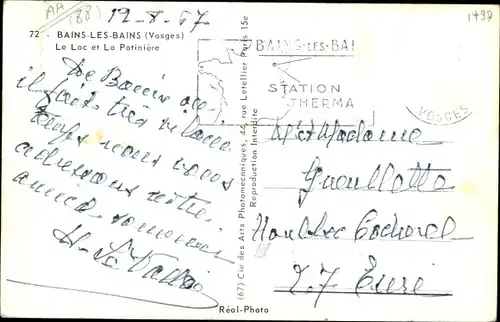 AA
(88)
12-8-67
1498
72 - BAINS-LES-BAINS (Vosges)
Le Lac et La Potinière
BAINS-LES-BAI
STATION
THERMA
VOSGES
De Bains ou
il fait très
temps nous vous
adressons notre
amical souvenir
(67) Cie des Arts Photomécaniques, 44, rue Letellier Paris 15e
Reproduction Interdite
Mr et Madame
27 Eure
Réal-Photo